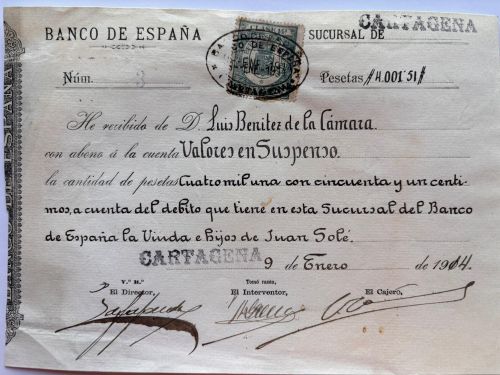 BANCO DE ESPAÑA
SUCURSAL DE CARTAGENA
Núm. 3
Pesetas //4.001'51//
He recibido de D. Luis Benitez de la Cámara.
con abono á la cuenta Valores en Suspenso.
la cantidad de pesetas Cuatro mil una con cincuenta y un centi-
mos, a cuenta del debito que tiene en esta Sucursal del Banco
de España la Viuda e hijos de Juan Solé.
CARTAGENA
9 de Enero de 1914.
V.º B.º
El Director,
Tomó razón,
El Interventor,
El Cajero,